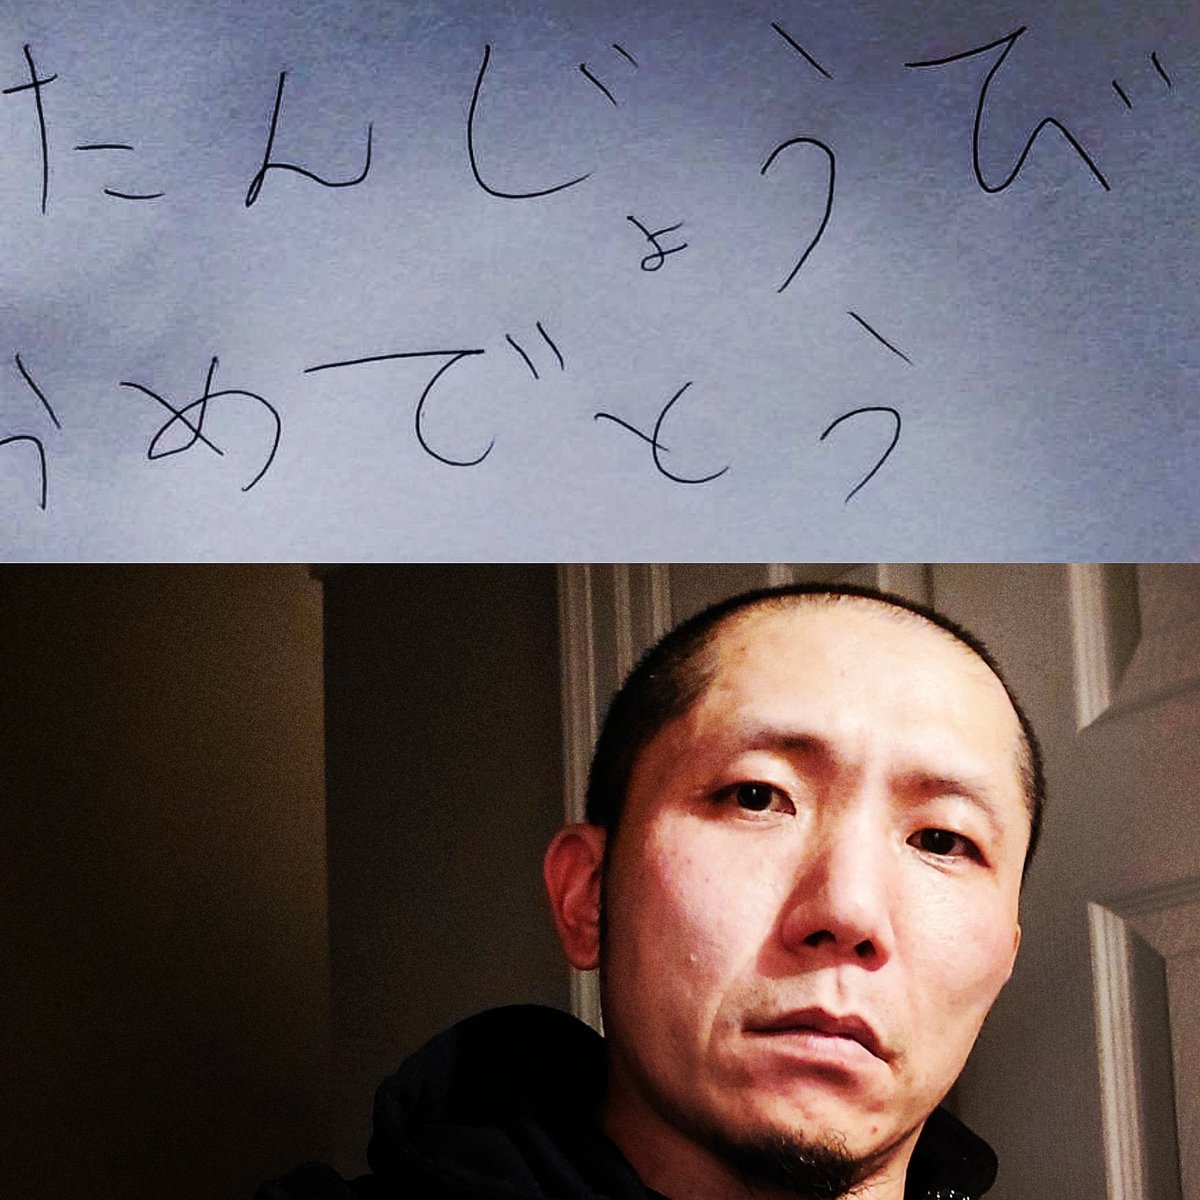 たんじょうび
うめでとう